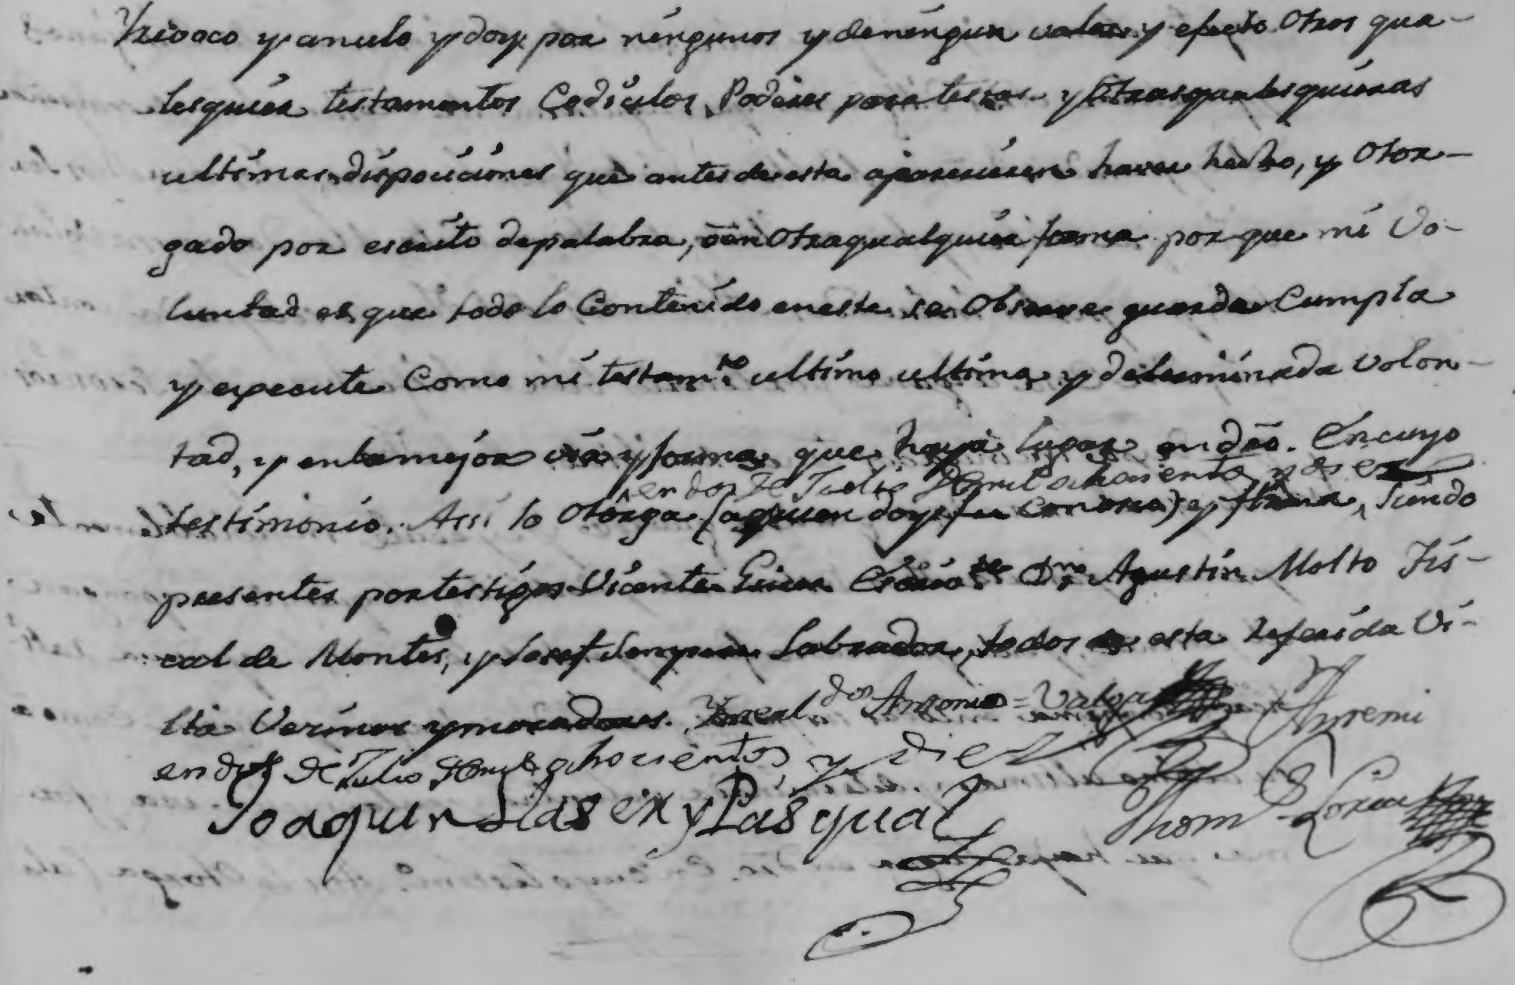 Y revoco y anulo y doy por ningunos y de ningun valor y efecto Otros qua-
lesquier testamentos Codicilos, Poderes para testar y Otras qualesquieras
ultimas disposiciones que antes de esta aparecieren haver hecho, y Otor-
gado por escrito de palabra, ô en Otra qualquier forma por que mi Vo-
luntad es que todo lo Contenido en este se Observe guarde Cumpla
y execute Como mi testam.to ultimo ultima y determinada volon-
tad, y en la mejor via y forma que haya lugar en dro. En cuyo
en dos de Julio de mil ochocientos y diez
testimonio. Assi lo Otorga (a quien doy fee conosco) y firma, Siendo
presentes por testigos Vicente Escriv.te D.n Agustin Molto Fis-
cal de Montes, y Josef Sempere Labrador, todos de esta referida Vi-
lla Vecinos y moradores. Antonio = Valga
Ante mi
en dos de Julio de mil ochocientos y diez
Joaquin Llaser y Pasqual
Thom.s Lorca